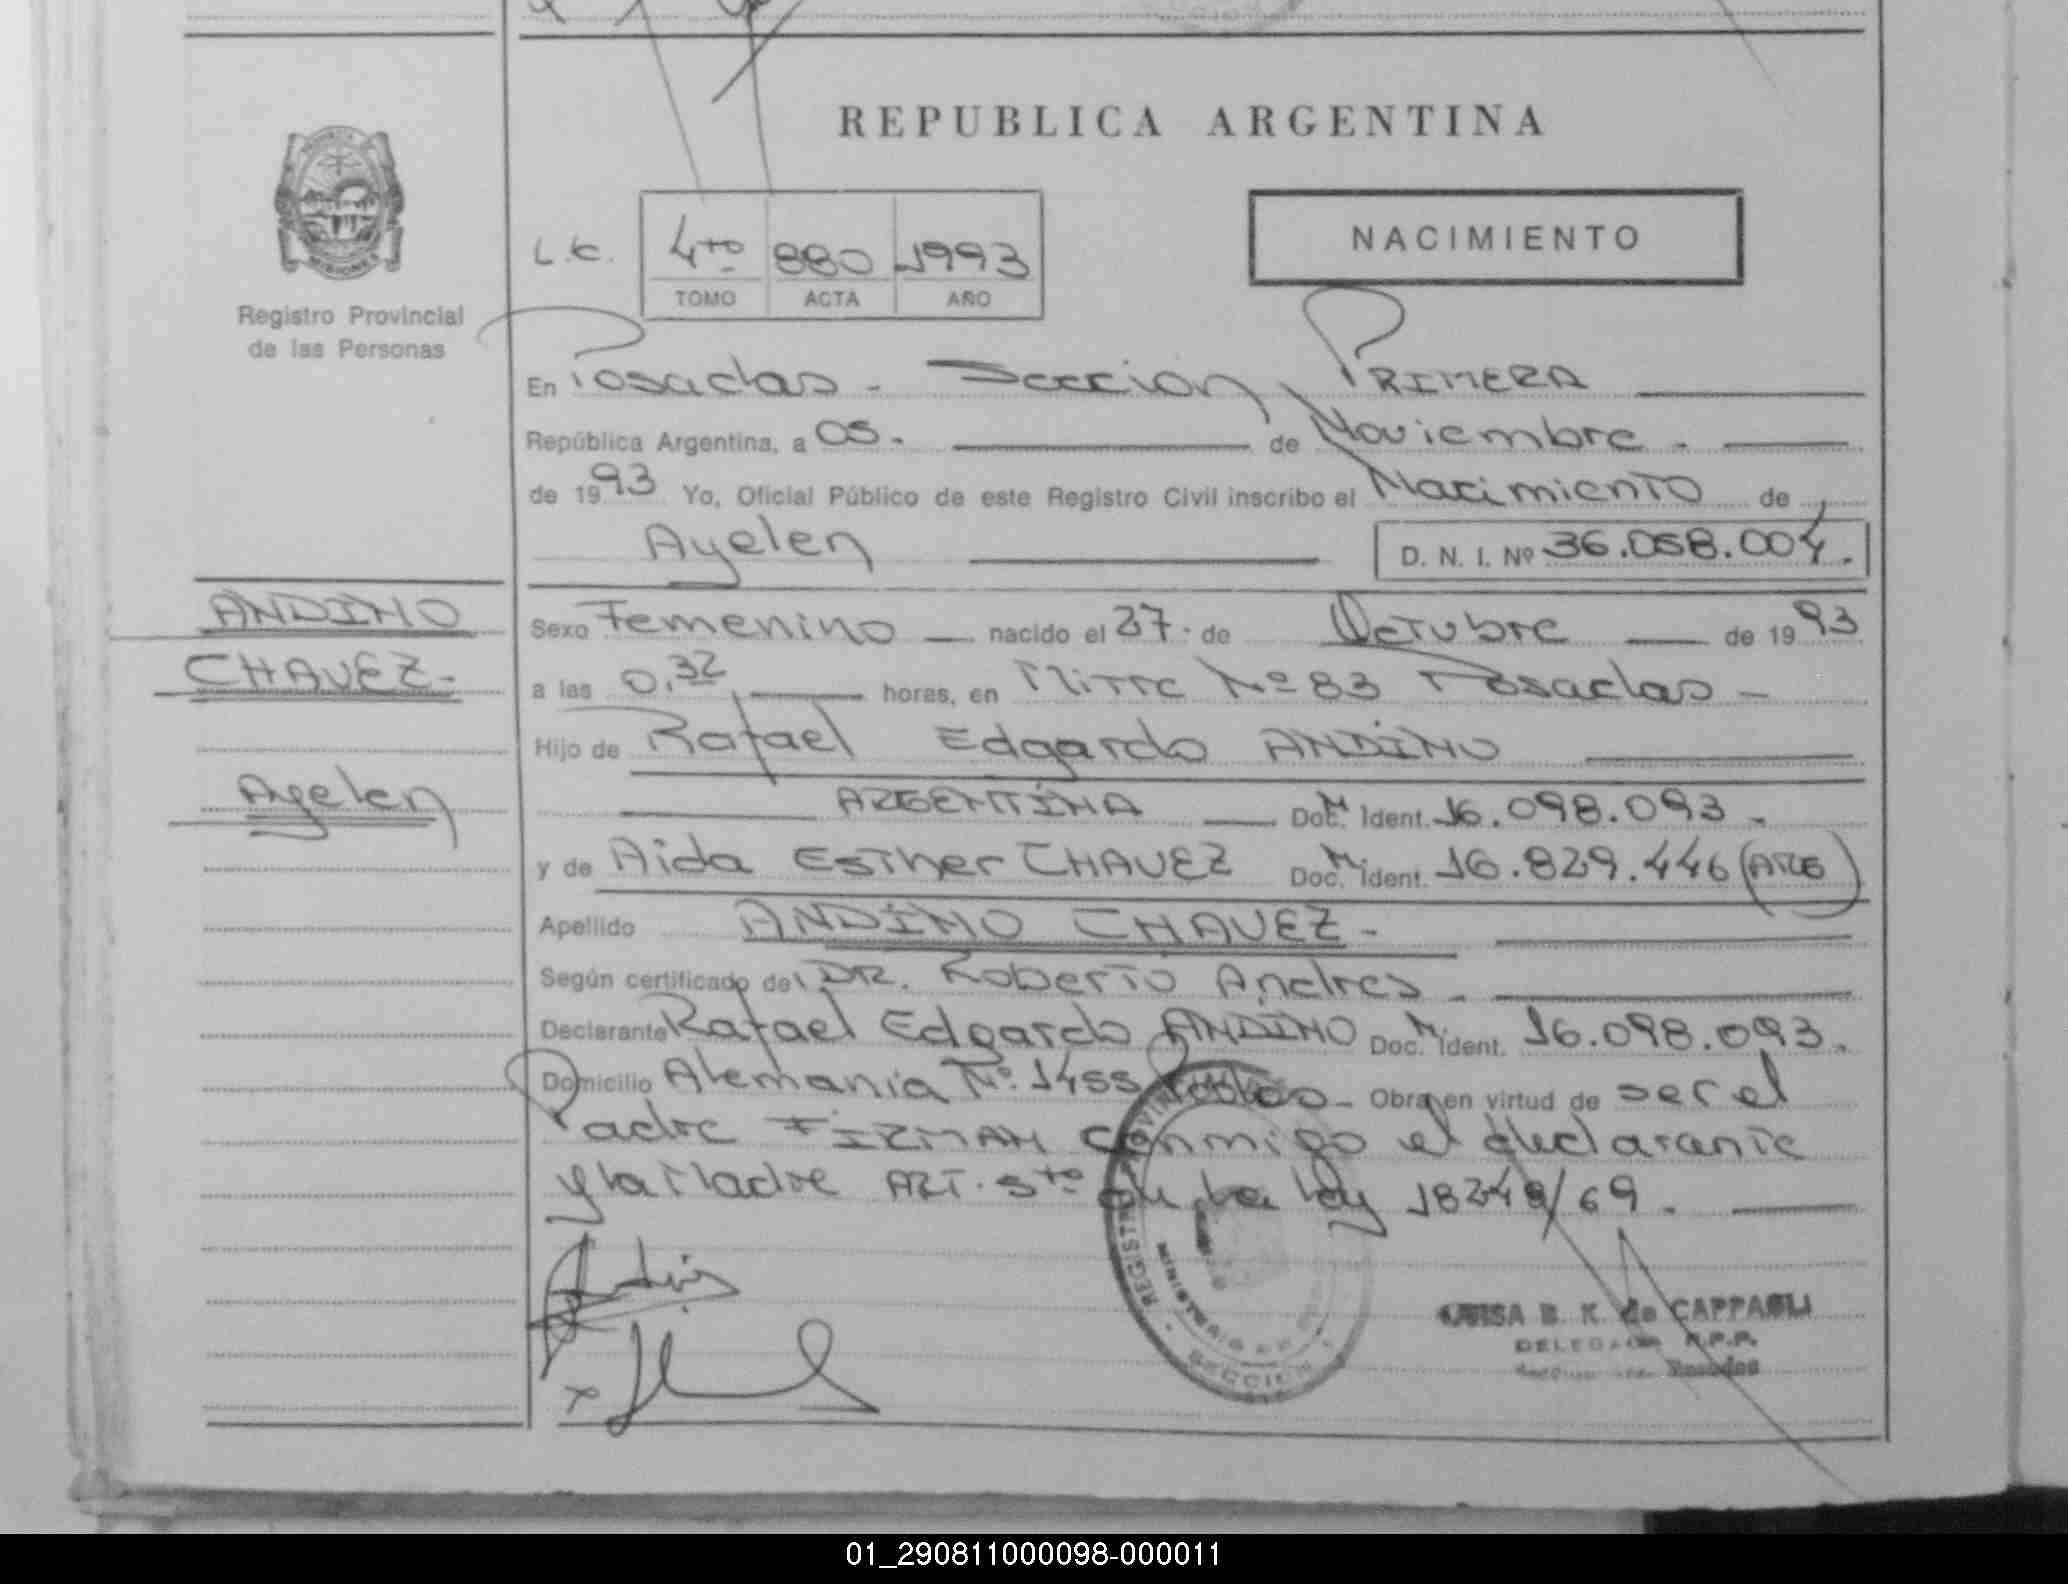 REPUBLICA ARGENTINA
PROVINCIA
MISIONES
Registro Provincial
de las Personas
NACIMIENTO
L.C. 4to 880 1993
TOMO ACTA AÑO
En Posadas - Seccion PRIMERA
República Argentina, a 05. de Noviembre.
de 1993 Yo, Oficial Público de este Registro Civil inscribo el Nacimiento de
Ayelen D. N. I. Nº 36.058.004.
ANDINO
CHAVEZ-
Ayelen
Sexo Femenino nacido el 27. de Octubre de 1993
a las 0,32 horas, en Mitre Nº 83 Posadas -
Hijo de Rafael Edgardo ANDINO
ARGENTINA Doc. M Ident. 16.098.093.
y de Aida Esther CHAVEZ Doc. M Ident. 16.829.446 (ARG)
Apellido ANDINO CHAVEZ-
Según certificado del DR. Roberto Andres.
Declarante Rafael Edgardo ANDINO Doc. M Ident. 16.098.093.
Domicilio Alemania Nº 1455 Pdas- Obra en virtud de ser el
Padre FIRMAN conmigo el declarante
y la Madre ART. 5to de la ley 18248/69.
REGISTRO
MINISTERIO
SECCION
LUISA B. K. de CAPPAGLI
DELEGADA R.P.P.
Posadas
01_290811000098-000011